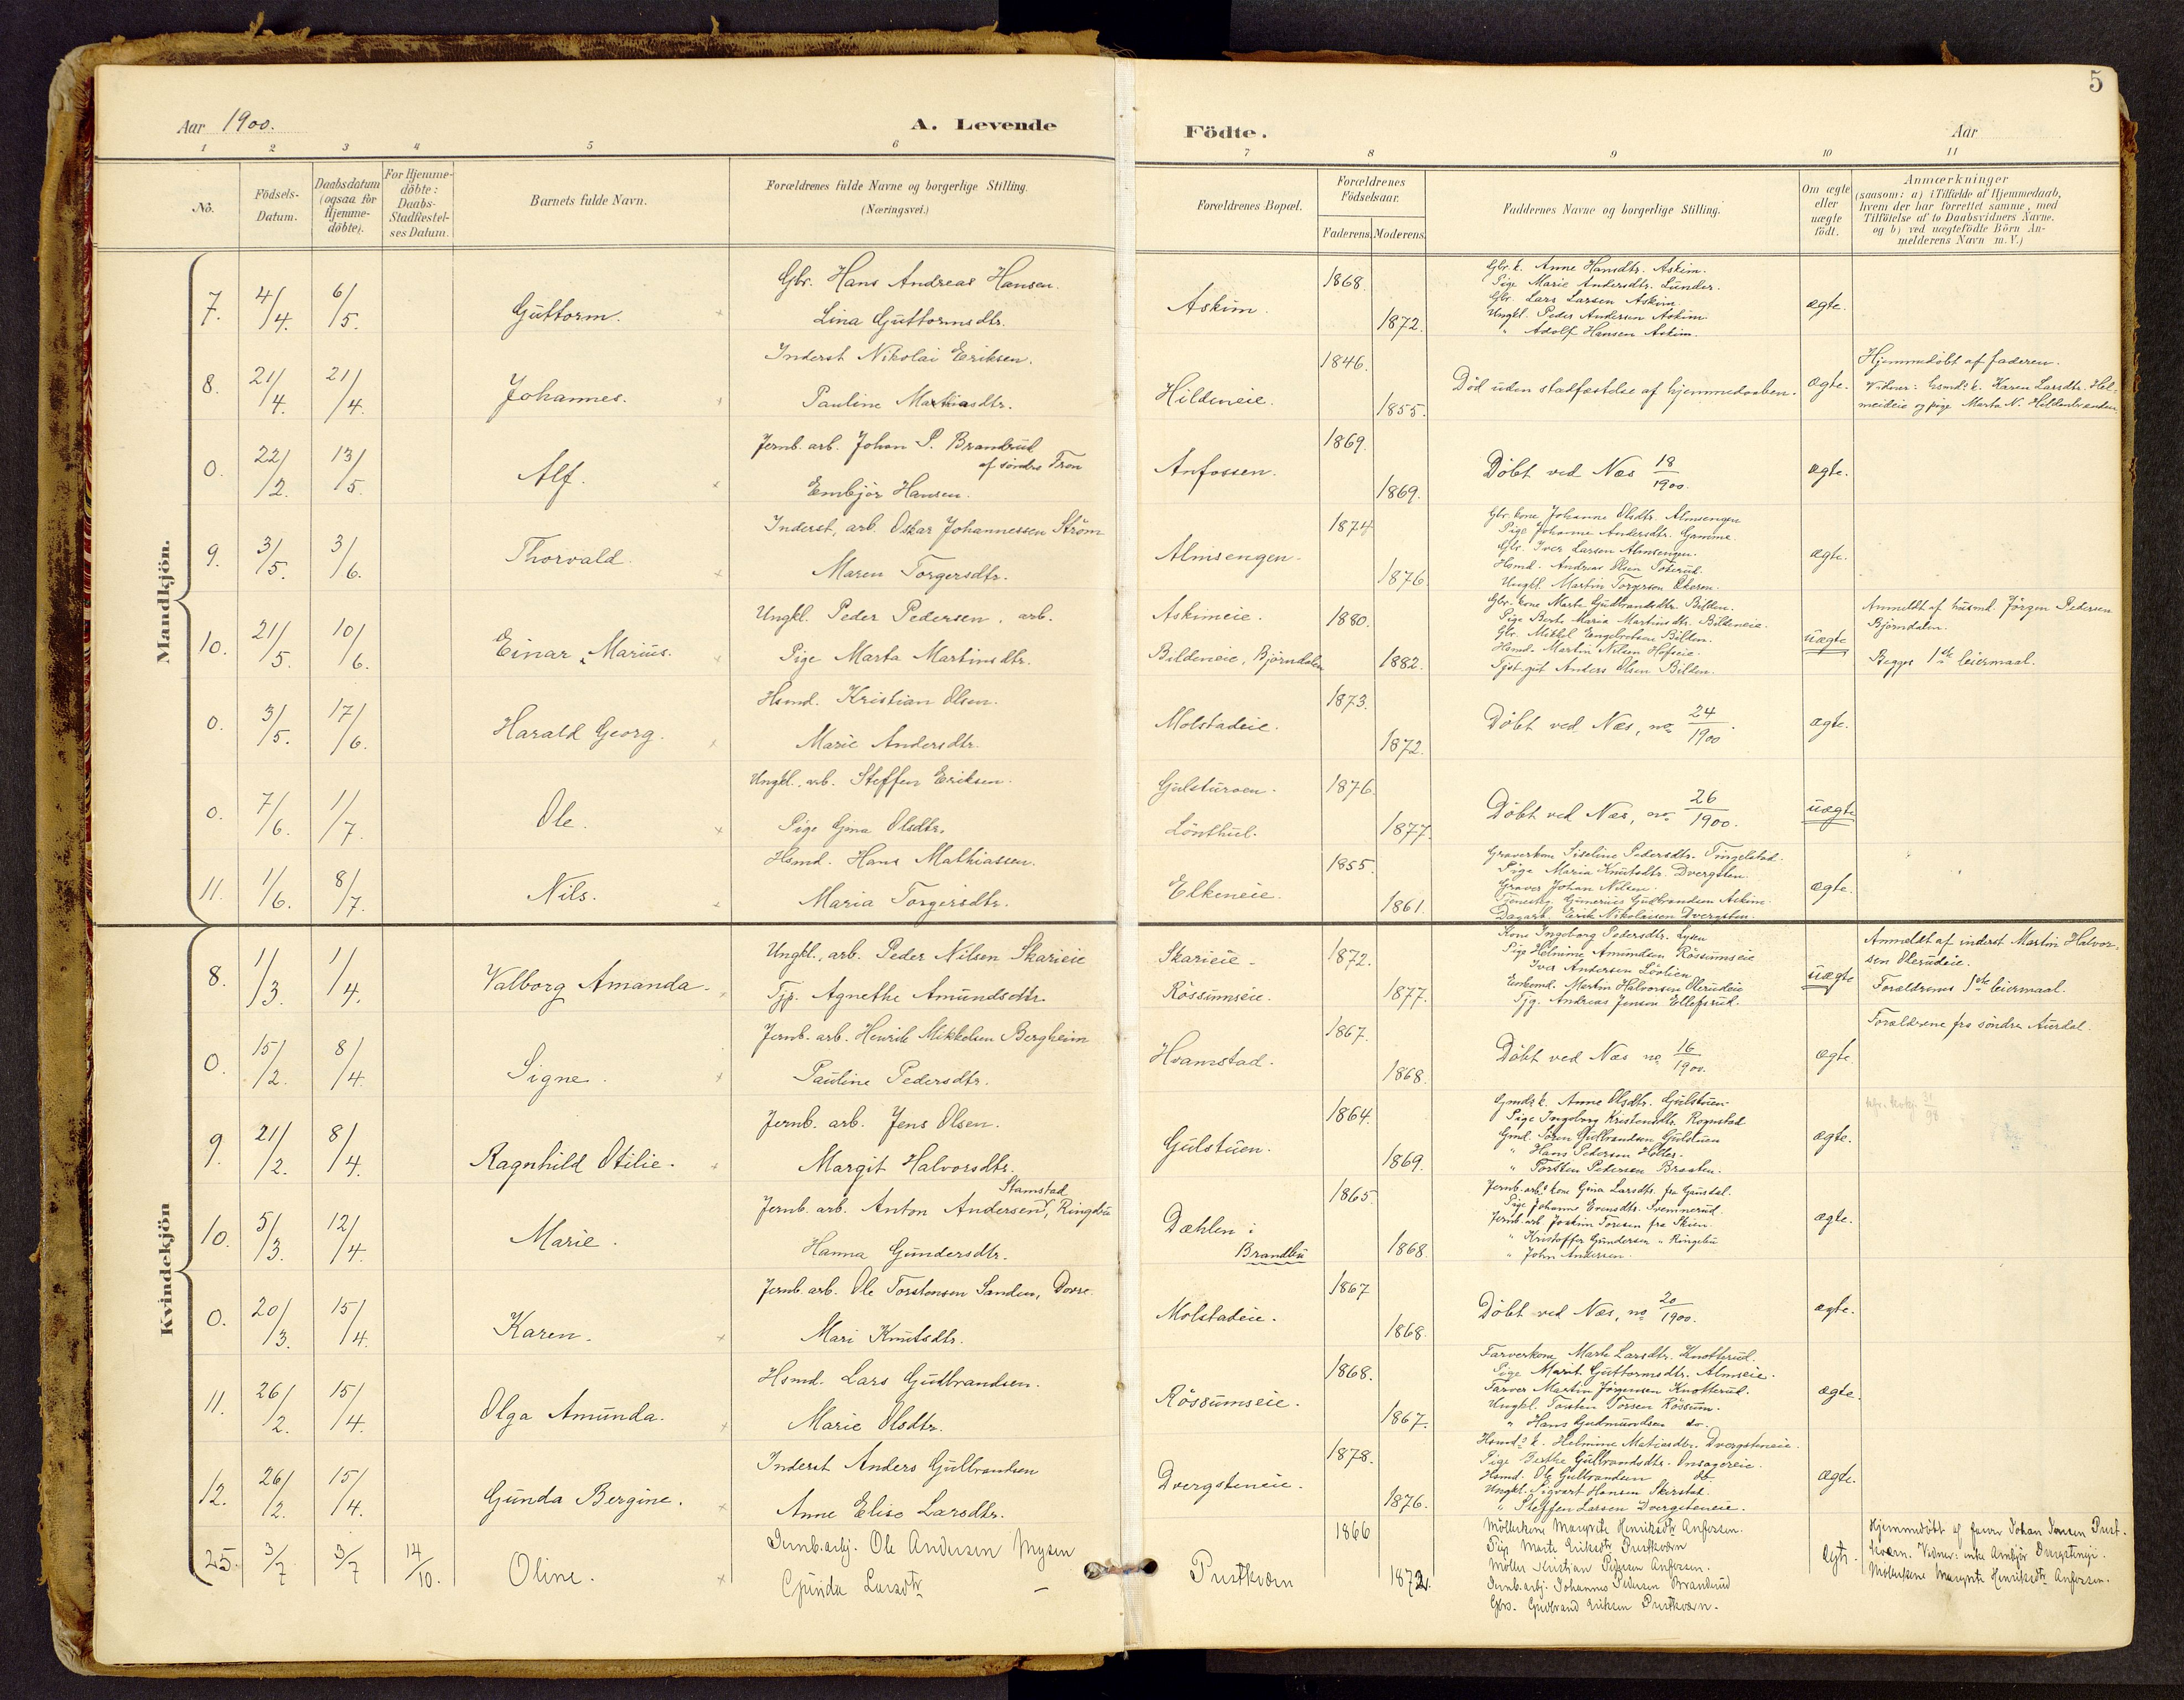 5
Aar 1900.
A. Levende Födte.
Aar
1 2 3 4 5 6 7 8 9 10 11
No.
Födsels-Datum.
Daabsdatum (ogsaa for Hjemme-döbte).
For Hjemme-döbte: Daabs-Stadfæstel-ses Datum.
Barnets fulde Navn.
Forældrenes fulde Navne og borgerlige Stilling. (Næringsvei.)
Forældrenes Bopæl.
Forældrenes Födselsaar.
Faderens. Moderens.
Faddernes Navne og borgerlige Stilling.
Om ægte eller uægte födt.
Anmærkninger
(saasom: a) i Tilfælde af Hjemmedaab,
hvem der har forrettet samme, med
Tilföielse af to Daabsvidners Navne.
og b) ved uægtefödte Börn An-
melderens Navn m. V.)
Mandkjön.
7. 4/4. 6/5. Guttorm.
Gbr. Hans Andreas Hansen.
Lina Guttormsdtr.
Askim. 1868. 1872.
Gbr. k. Anne Hansdtr. Askim.
Pige Marie Andersdtr. Lunder.
Gbr. Lars Larsen Askim.
Ungkl. Peder Andersen Askim.
" Adolf Hansen Askim.
ægte.
8. 21/4. 21/4. Johannes.
Inderst Nikolai Eriksen.
Pauline Mathiasdtr.
Hildeneie. 1846. 1855.
Död uden stadfæstelse af hjemmedaaben.
ægte.
Hjemmedöbt af faderen.
Vidner: husmds k. Karen Larsdtr. Hel-
meideie og pige Marta N. Hildenbrænden
0. 22/2. 13/5. Alf.
Jernb. arb. Johan P. Brandrud
af söndre Fron
Embjör Hansen.
Anfossen. 1869. 1869.
Döbt ved Næs 18/1900.
ægte.
9. 3/5. 3/6. Thorvald.
Inderst, arb. Oskar Johannessen Ström
Maren Torgersdtr.
Almsengen. 1874 1876
Gbr. kone Johanne Olsdtr. Almsengen
Pige Johanne Andersdtr. Gamme.
Gbr. Iver Larsen Almsengen.
Hsmd. Andreas Olsen Toterud.
Ungkl. Martin Torgersen
ægte.
10. 21/5. 10/6. Einar Marius.
Ungkl. Peder Pedersen. arb.
Pige Marta Martinsdtr.
Askimeie. 1880.
Bildeneie, Björndalen 1882.
Gbr. kone Marte Gudbrandsdtr. Bilden.
Pige Berte Maria Martinsdtr. Bildeneie.
Gbr. Mikkel Engebretsen Bilden.
Hsmd. Martin Nilsen Hofseie.
Tjst. gut Anders Olsen Bilden.
uægte
Anmeldt af husmd. Jörgen Pedersen
Björndalen.
Begges 1ste leiermaal.
0. 3/5. 17/6. Harald Georg.
Hsmd. Kristian Olsen.
Marie Andersdtr.
Molstadeie. 1873. 1872.
Döbt ved Næs, no 24/1900
ægte.
0. 7/6. 1/7. Ole.
Ungkl. arb. Steffen Eriksen.
Pige Gina Olsdtr.
Gulsturoen. 1876.
Lönthul. 1877.
Döbt ved Næs, no 26/1900.
uægte
11. 1/6. 8/7. Nils.
Hsmd. Hans Mathiassen.
Maria Torgersdtr.
Elkeneie. 1855. 1861.
Graverkone Siseline Pedersdtr. Tingelstad.
Pige Maria Knutsdtr. Dvergsten.
Graver Johan Nilsen.
Tjenestg. Gumerius Gudbrandsen Askim.
Dagarb. Erik Nikolaisen Dvergsten.
ægte.
Kvindekjön
8. 1/3. 1/4. Valborg Amanda.
Ungkl., arb. Peder Nilsen Skarieie
Tjp. Agnethe Amundsdtr.
Skarieie. 1872.
Rössumseie. 1877.
Kone Ingeborg Pedersdtr. Lyken
Pige Helmine Amundsen Rössumseie
Iver Andersen Lövlien
Enkemd. Martin Halvorsen Olerudeie
Tjg. Andreas Jensen Ellefsrud.
uægte
Anmeldt af inderst Martin Halvor-
sen Olerudeie.
Forældrenes 1ste leiermaal.
0. 15/2. 8/4. Signe.
Jernb. arb. Henrik Mikkelsen Bergheim
Pauline Pedersdtr.
Hvamstad. 1867. 1868.
Döbt ved Næs no 16/1900.
ægte.
Forældrene fra söndre Aurdal.
9. 21/2. 8/4. Ragnhild Otilie.
Jernb. arb. Jens Olsen.
Margit Halvorsdtr.
Gulstuen. 1864. 1869.
Gmds k. Anne Olsdtr. Gulstuen
Pige Ingeborg Kristensdtr. Rognstad
Gmd. Sören Gulbrandsen Gulstuen
" Hans Pedersen Holter.
" Torsten Pedersen Braaten.
ægte.
10. 5/3. 12/4. Marie.
Stamstad
Jernb. arb. Anton Andersen, Ringebu
Hanna Gundersdtr.
Dæhlen i
Brandbu 1865. 1868.
Jernb. arb.s kone Gina Larsdtr. fra Gausdal.
Pige Johanne Evensdtr. Svennerud.
Jernb. arb. Joakim Toresen fra Skien.
" Kristoffer Gundersen " Ringebu
" John Andersen.
ægte.
0. 20/3. 15/4. Karen.
Jernb. arb. Ole Torstensen Sanden, Dovre.
Mari Knutsdtr.
Molstadeie. 1867 1868.
Döbt ved Næs, no 20/1900.
ægte.
11. 26/2. 15/4. Olga Amunda.
Hsmd. Lars Gudbrandsen.
Marie Olsdtr.
Rössumseie. 1868. 1867.
Farverkone Marte Larsdtr. Knotterud.
Pige Marit Guttormsdtr. Almseie.
Farver Martin Jörgensen Knotterud.
Ungkl. Torsten Torsen Rössum.
" Hans Gudmundsen do.
ægte.
12. 26/2. 15/4. Gunda Bergine.
Inderst Anders Gulbrandsen
Anne Elise Larsdtr.
Dvergsteneie. 1878. 1876.
Hsmds k. Helmine Matiasdtr. Dvergsteneie.
Pige Berthe Gulbrandsdtr. Onsagereie.
Hsmd. Ole Gulbrandsen do.
Ungkl. Sigvart Hansen Skirstad.
" Steffen Larsen Dvergsteneie.
ægte.
25. 3/7 3/7 14/10. Oline.
Jernb.arbj. Ole Andersen Mysen
Gunda Larsdtr.
Pustkværn 1866 1872.
Möllerkone Margrete Henriksdtr Anfossen.
Pige Marte Eriksdtr Pustkværn
Möller Kristian Pedersen Anfossen.
Jernb.arbj. Johannes Pedersen Brandrud
Gbr. Gudbrand Eriksen Pustkværn.
ægte.
Hjemmedöbt af farver Johan Jensen Pust-
kværn. Vidner: enke Ambjör Dvergsteneie.
Möllerkone Margrete Henriksdtr Anfossen.